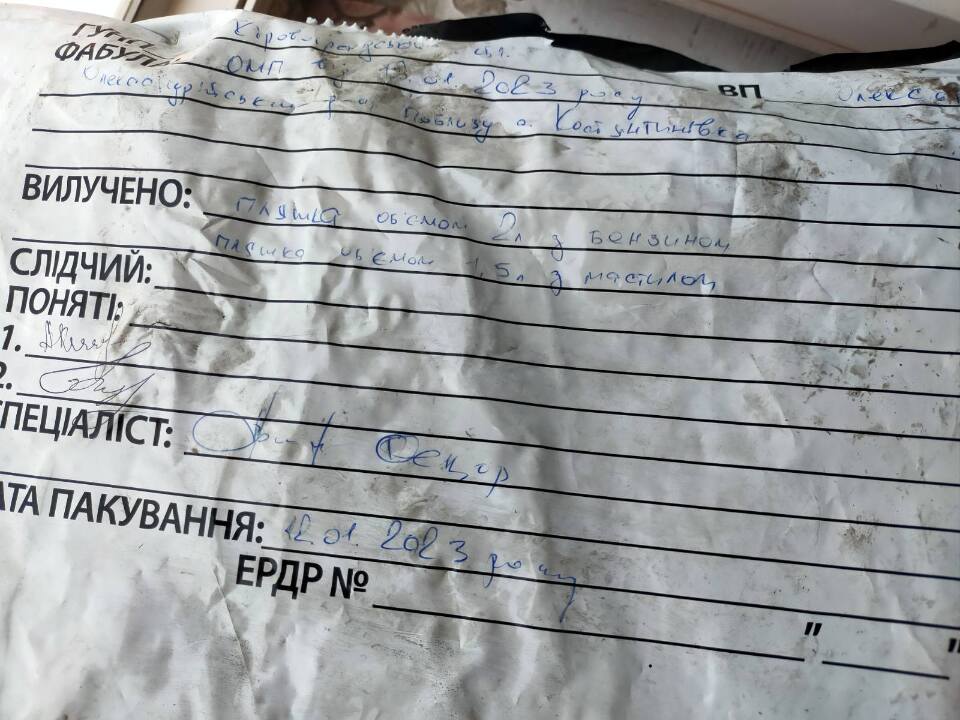 Кіровоградській обл.
ФАБУЛА ОМП від 12.01.2023 року ВП Олекса
Олександрійський р-н, поблизу с. Костянтинівка
ВИЛУЧЕНО: пляшка об'ємом 2л з бензином
пляшка об'ємом 1,5л з мастилом
СЛІДЧИЙ:
ПОНЯТІ:
1.
2.
СПЕЦІАЛІСТ:
АТА ПАКУВАННЯ: 12.01.2023 року
ЕРДР № " "